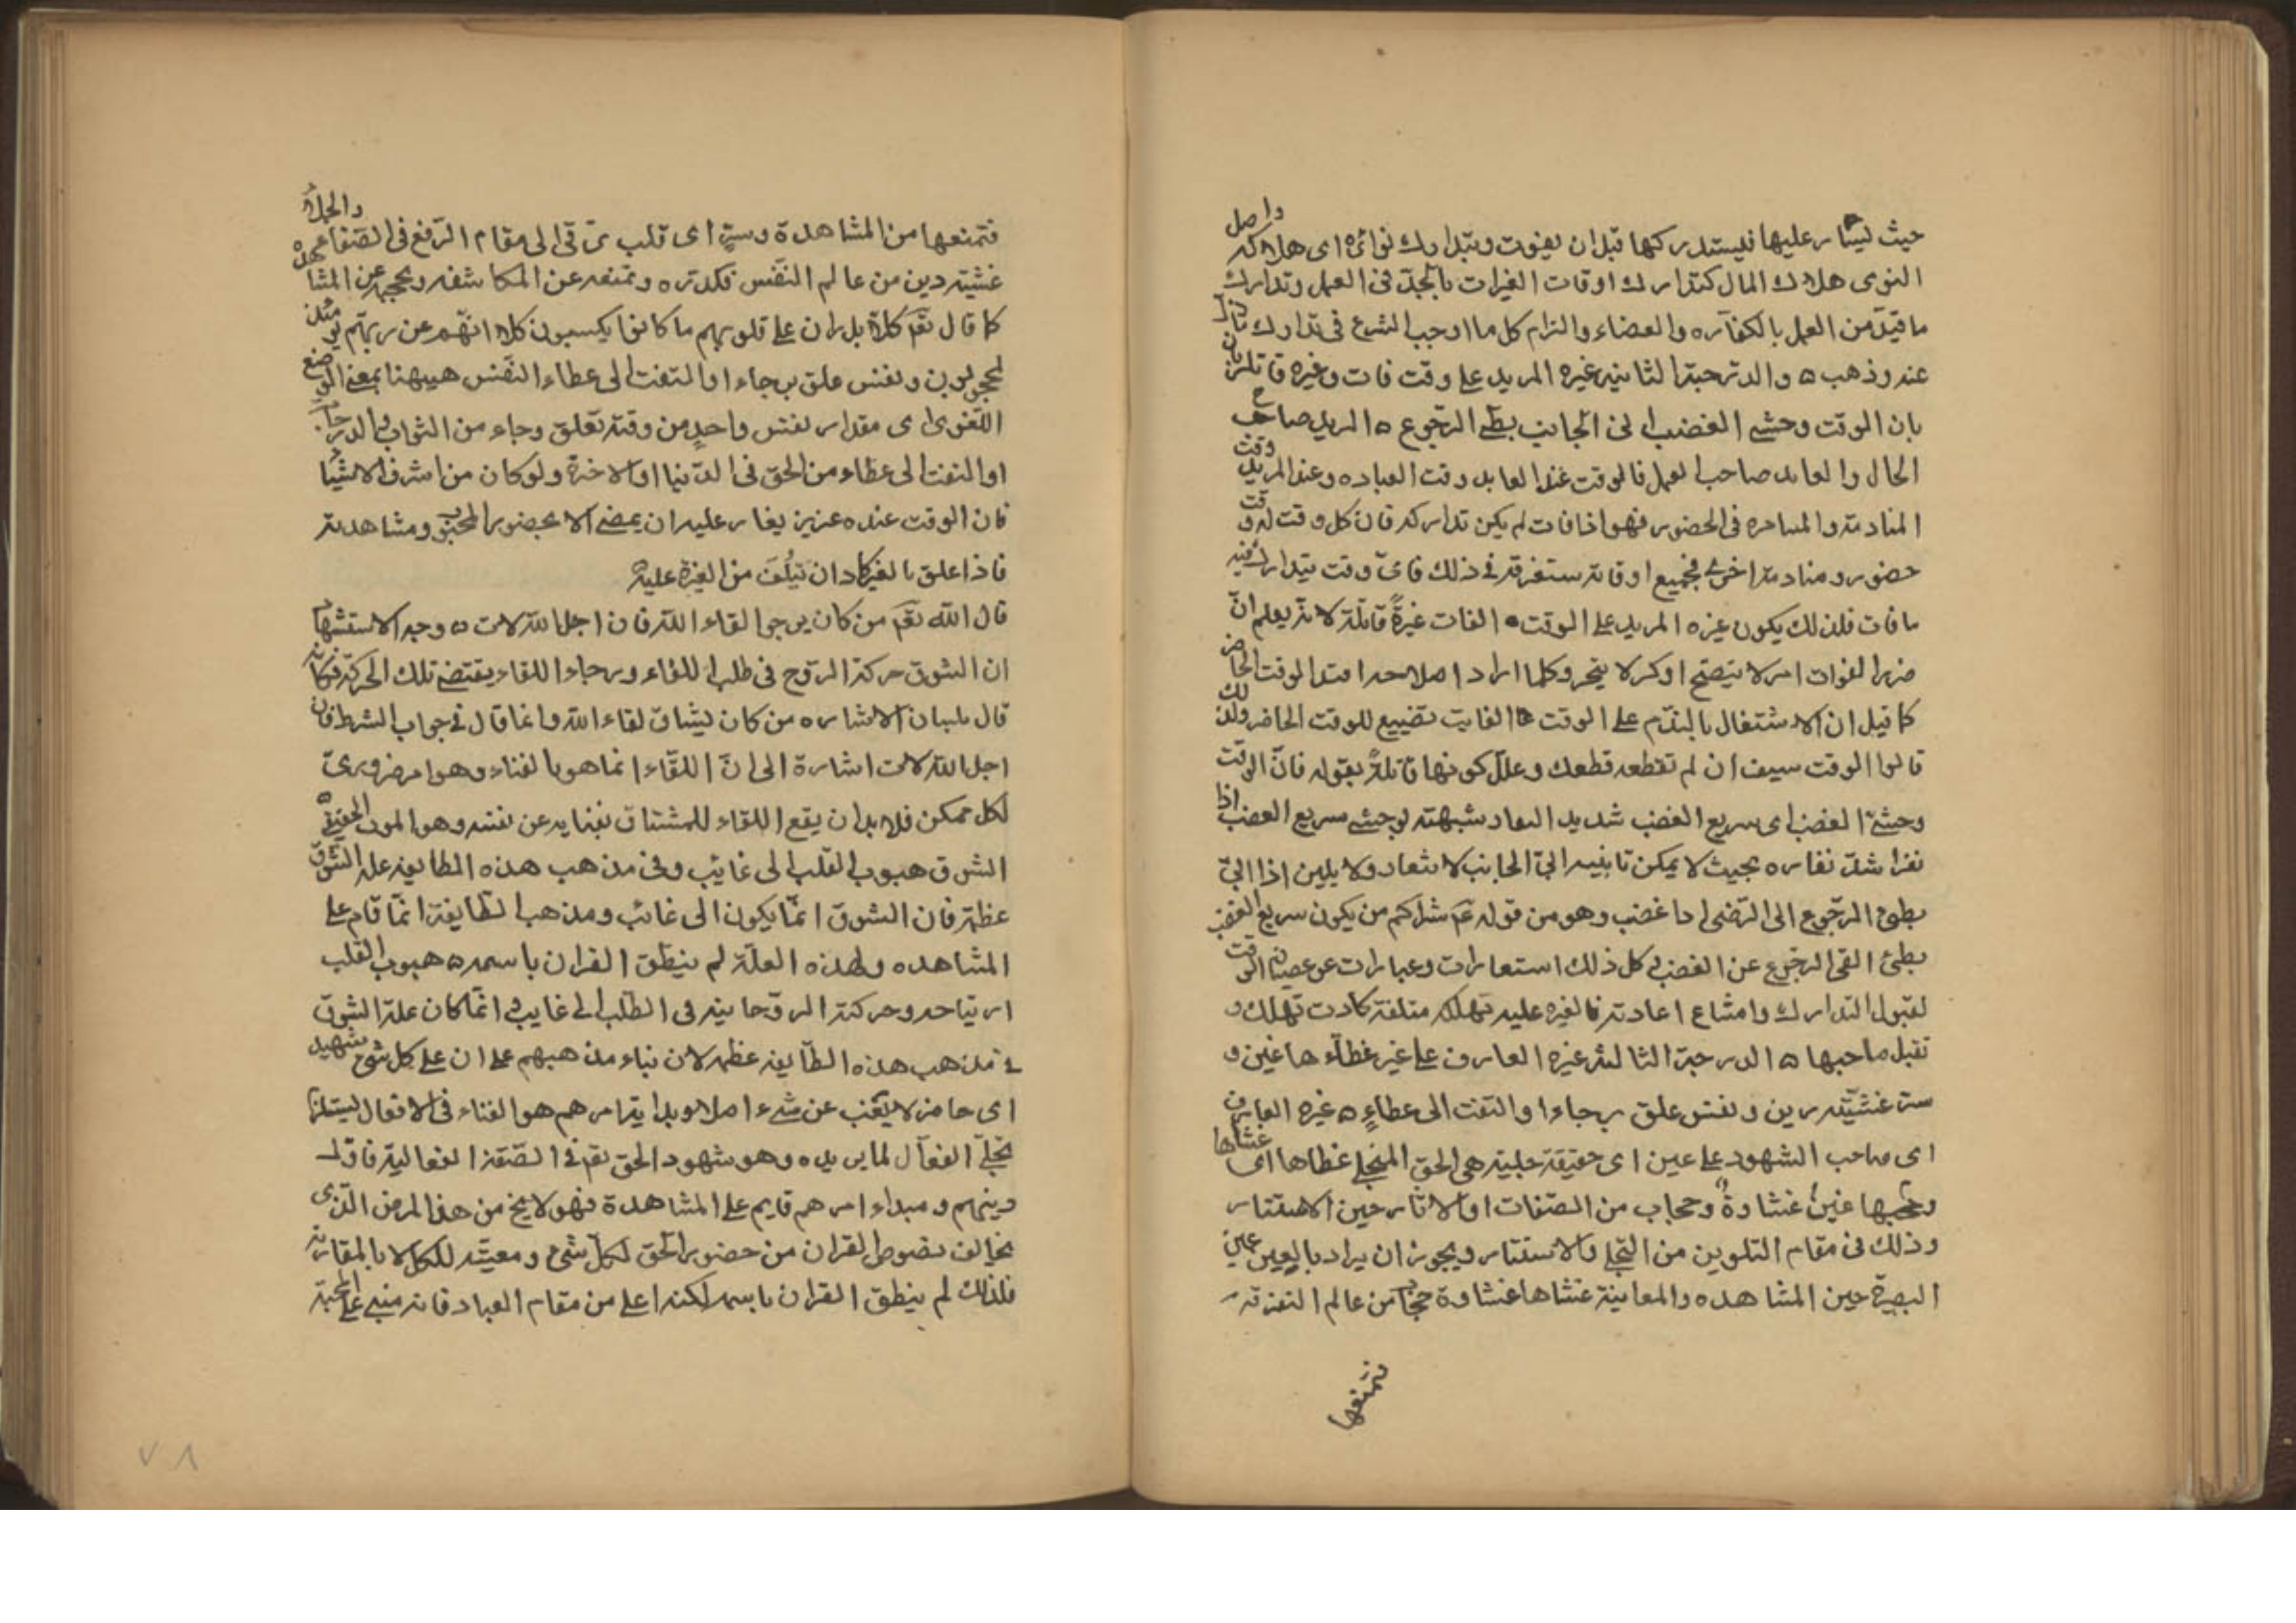 حيث ليسار عليها فليستدركها قبل ان يفوت ويتدارك نوائه اى هلاكه واصل
النوى هلاك المال كتدارك اوقات الغيرات بالجد فى العمل وتدارك
ما قيد من العمل بالكفاره والقضاء والتزام كل ما اوجب الشرع فى تدارك
عنه وذهب ه والدرجة الثانيه غيره المريد على وقت فات وغيره قاتله
بان الوقت وحشى الغضب ابى الجانب بطئ الرجوع ه المريد صاحب
الحال والعابد صاحب العمل فالوقت عند العابد وقت العباده وعند المريد وقت
المنادمة والمسامره فى الحضور فهو اذا فات لم يكن تداركه فان كل وقت له وقت
حضور ومنادمة اخرى فجميع اوقاته مستغرقه فى ذلك فاىّ وقت يتدارك فيه
ما فات فلذلك يكون غيره المريد على الوقت الفات غيرةً قاتلة لانه يعلم انّ
ضرر الفوات امر لا يتصح او كسر لا ينجبر وكلما اراد اصلاحه امتد الوقت الحاضر
كما قيل ان الاشتغال بالندم على الوقت الفايت تضييع للوقت الحاضر ولذلك
قالوا الوقت سيف ان لم تقطعه قطعك وعلل كونها قاتلةً بقوله فان الوقت
وحشىّ الغضب اى سريع الغضب شديد البعاد شبهته لوحشى سريع الغضب اذا
نفر اشتد نفاره بحيث لا يمكن تانيسه ابىّ الجانب لا ينقاد ولا يلين اذا ابىّ
بطئ الرجوع الى الرضى اذا غضب وهو من قوله عم شراركم من يكون سريع الغضب
بطئ الفئ الرجوع عن الغضب كل ذلك استعارات وعبارات عن عصيان الوقت
لقبول التدارك وامتناع اعادته فالغيره عليه تهلكه متلفة كادت تهلك و
تقتل صاحبها ه الدرجة الثالثه غيره العارف على عين غطاّء ها غين و
ستر غشيّه رين ونفس علق برجاء او التفت الى عطاءٍ ه غيره العارف
اى صاحب الشهود على عين اى حقيقة جلية هى الحق المنجلى غطاها اى غشاها
وحجبها غين غشاوةٌ وحجاب من الصفات او الاثار حين الاستتار
وذلك فى مقام التلوين من التجلى والاستتار ويجوز ان يراد بالعين عين
البصيرة حين المشاهده والمعاينة غشاها غشاوة حجاب من عالم التفرقه
فتمنعها
فتمنعها من المشاهدة وسترٍ اى قلب ترقى الى مقام الرفع فى الصفا
غشيه رين من عالم النفس فكدره ومنعه عن المكاشفه وحجبه عن المشاهده
كما قال تعم كلا بل ران على قلوبهم ما كانوا يكسبون كلا انهم عن ربهم يومئذ
لمحجوبون ونفس علق برجاء او التفت الى عطاء النفس هيهنا بمعنى الوضع
اللغوى اى مقدار نفس واحدٍ من وقته تعلق رجاء من الثواب والدرجات
او التفت الى عطاء من الحق فى الدنيا او الاخرة ولو كان من اشرف الاشيا
فان الوقت عنده عزيز يغار عليه ان يمضى الا بحضور المحبوب ومشاهدته
فاذا علق بالغير كاد ان يتلف من الغيرة عليه
قال الله تعم من كان يرجو لقاء الله فان اجل الله لات ه وجه الاستشهاد
ان الشوق حركة الروح فى طلب اللقاء ورجاء اللقاء يقتضى تلك الحركة فكانه
قال بلسان الاشاره من كان يشتاق لقاء الله وانما قال فى جواب الشرط فان
اجل الله لات اشارة الى انّ اللقاء انما هو بالفناء وهو امر ضرورىّ
لكل ممكن فلا بد ان يقع اللقاء للمشتاق بفنايه عن نفسه وهو الموت الحقيقى ه
الشوق هبوب القلب الى غايب وفى مذهب هذه الطايفه علة الشوق
عظيمة فان الشوق انمّا يكون الى غائب ومذهب الطايفة انمّا قام على
المشاهده ولهذه العلّة لم ينطق القران باسمه ه هبوب القلب
ارتياحه وحركته الروحانيه فى الطلب الى غايب وانمّا كان علة الشوق
فى مذهب هذه الطايفه عظيمه لان بناء مذهبهم على ان على كل شئ شهيد
اى حاضر لا يغيب عن شىء اصلا وبدايتة امرهم هو الفناء فى الافعال ليستلزم
تجلّى الفعّال لما يريده وهو شهود الحق تعم فى الصّفة الفعالية فاوّل
دينهم ومبداء امرهم قايم على المشاهدة فهو لا يخ من هذا المرض الّذى
يخالف نصوص القران من حضور الحق لكل شئ ومعيته للكل لا بالمقارنه
فلذلك لم ينطق القران باسمه لكنه اعلى من مقام العباد فانه مبنى على المحبة
٧٨